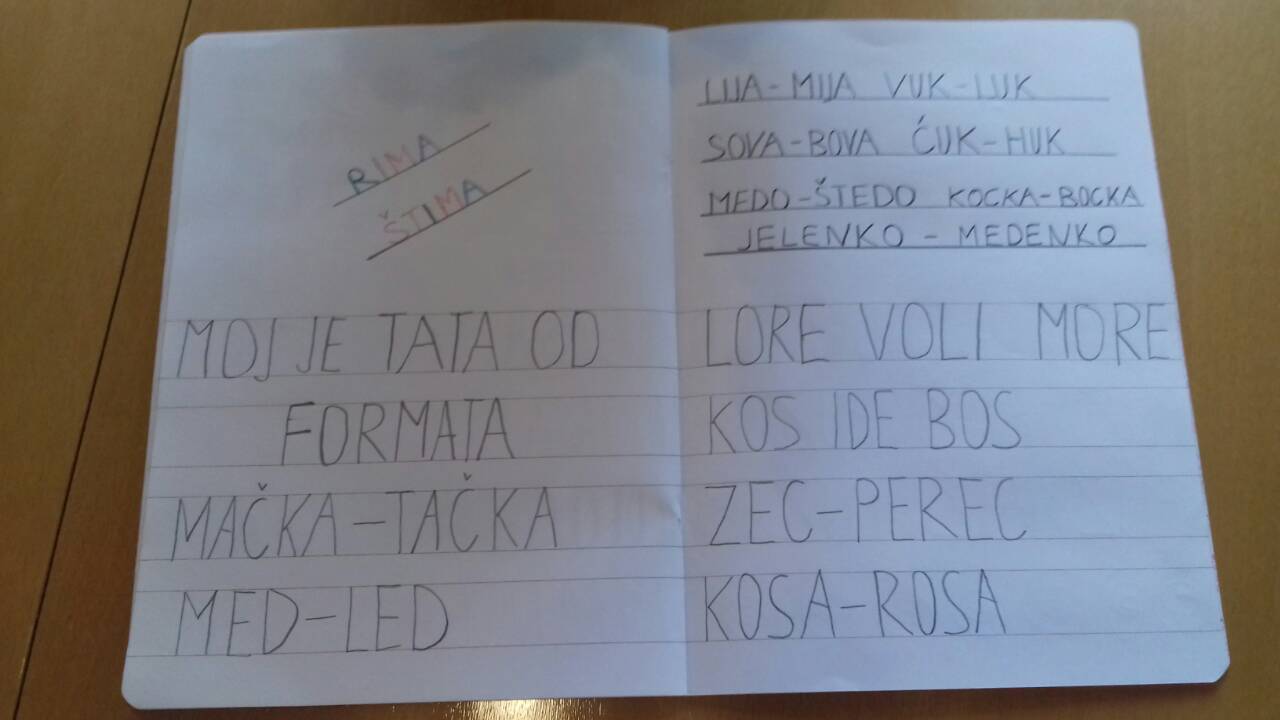 RIMA
ŠTIMA
MOJ JE TATA OD
FORMATA
MAČKA-TAČKA
MED-LED
LIJA-MIJA VUK-LUK
SOVA-BOVA ĆUK-HUK
MEDO-ŠTEDO KOCKA-BOCKA
JELENKO - MEDENKO
LORE VOLI MORE
KOS IDE BOS
ZEC-PEREC
KOSA-ROSA